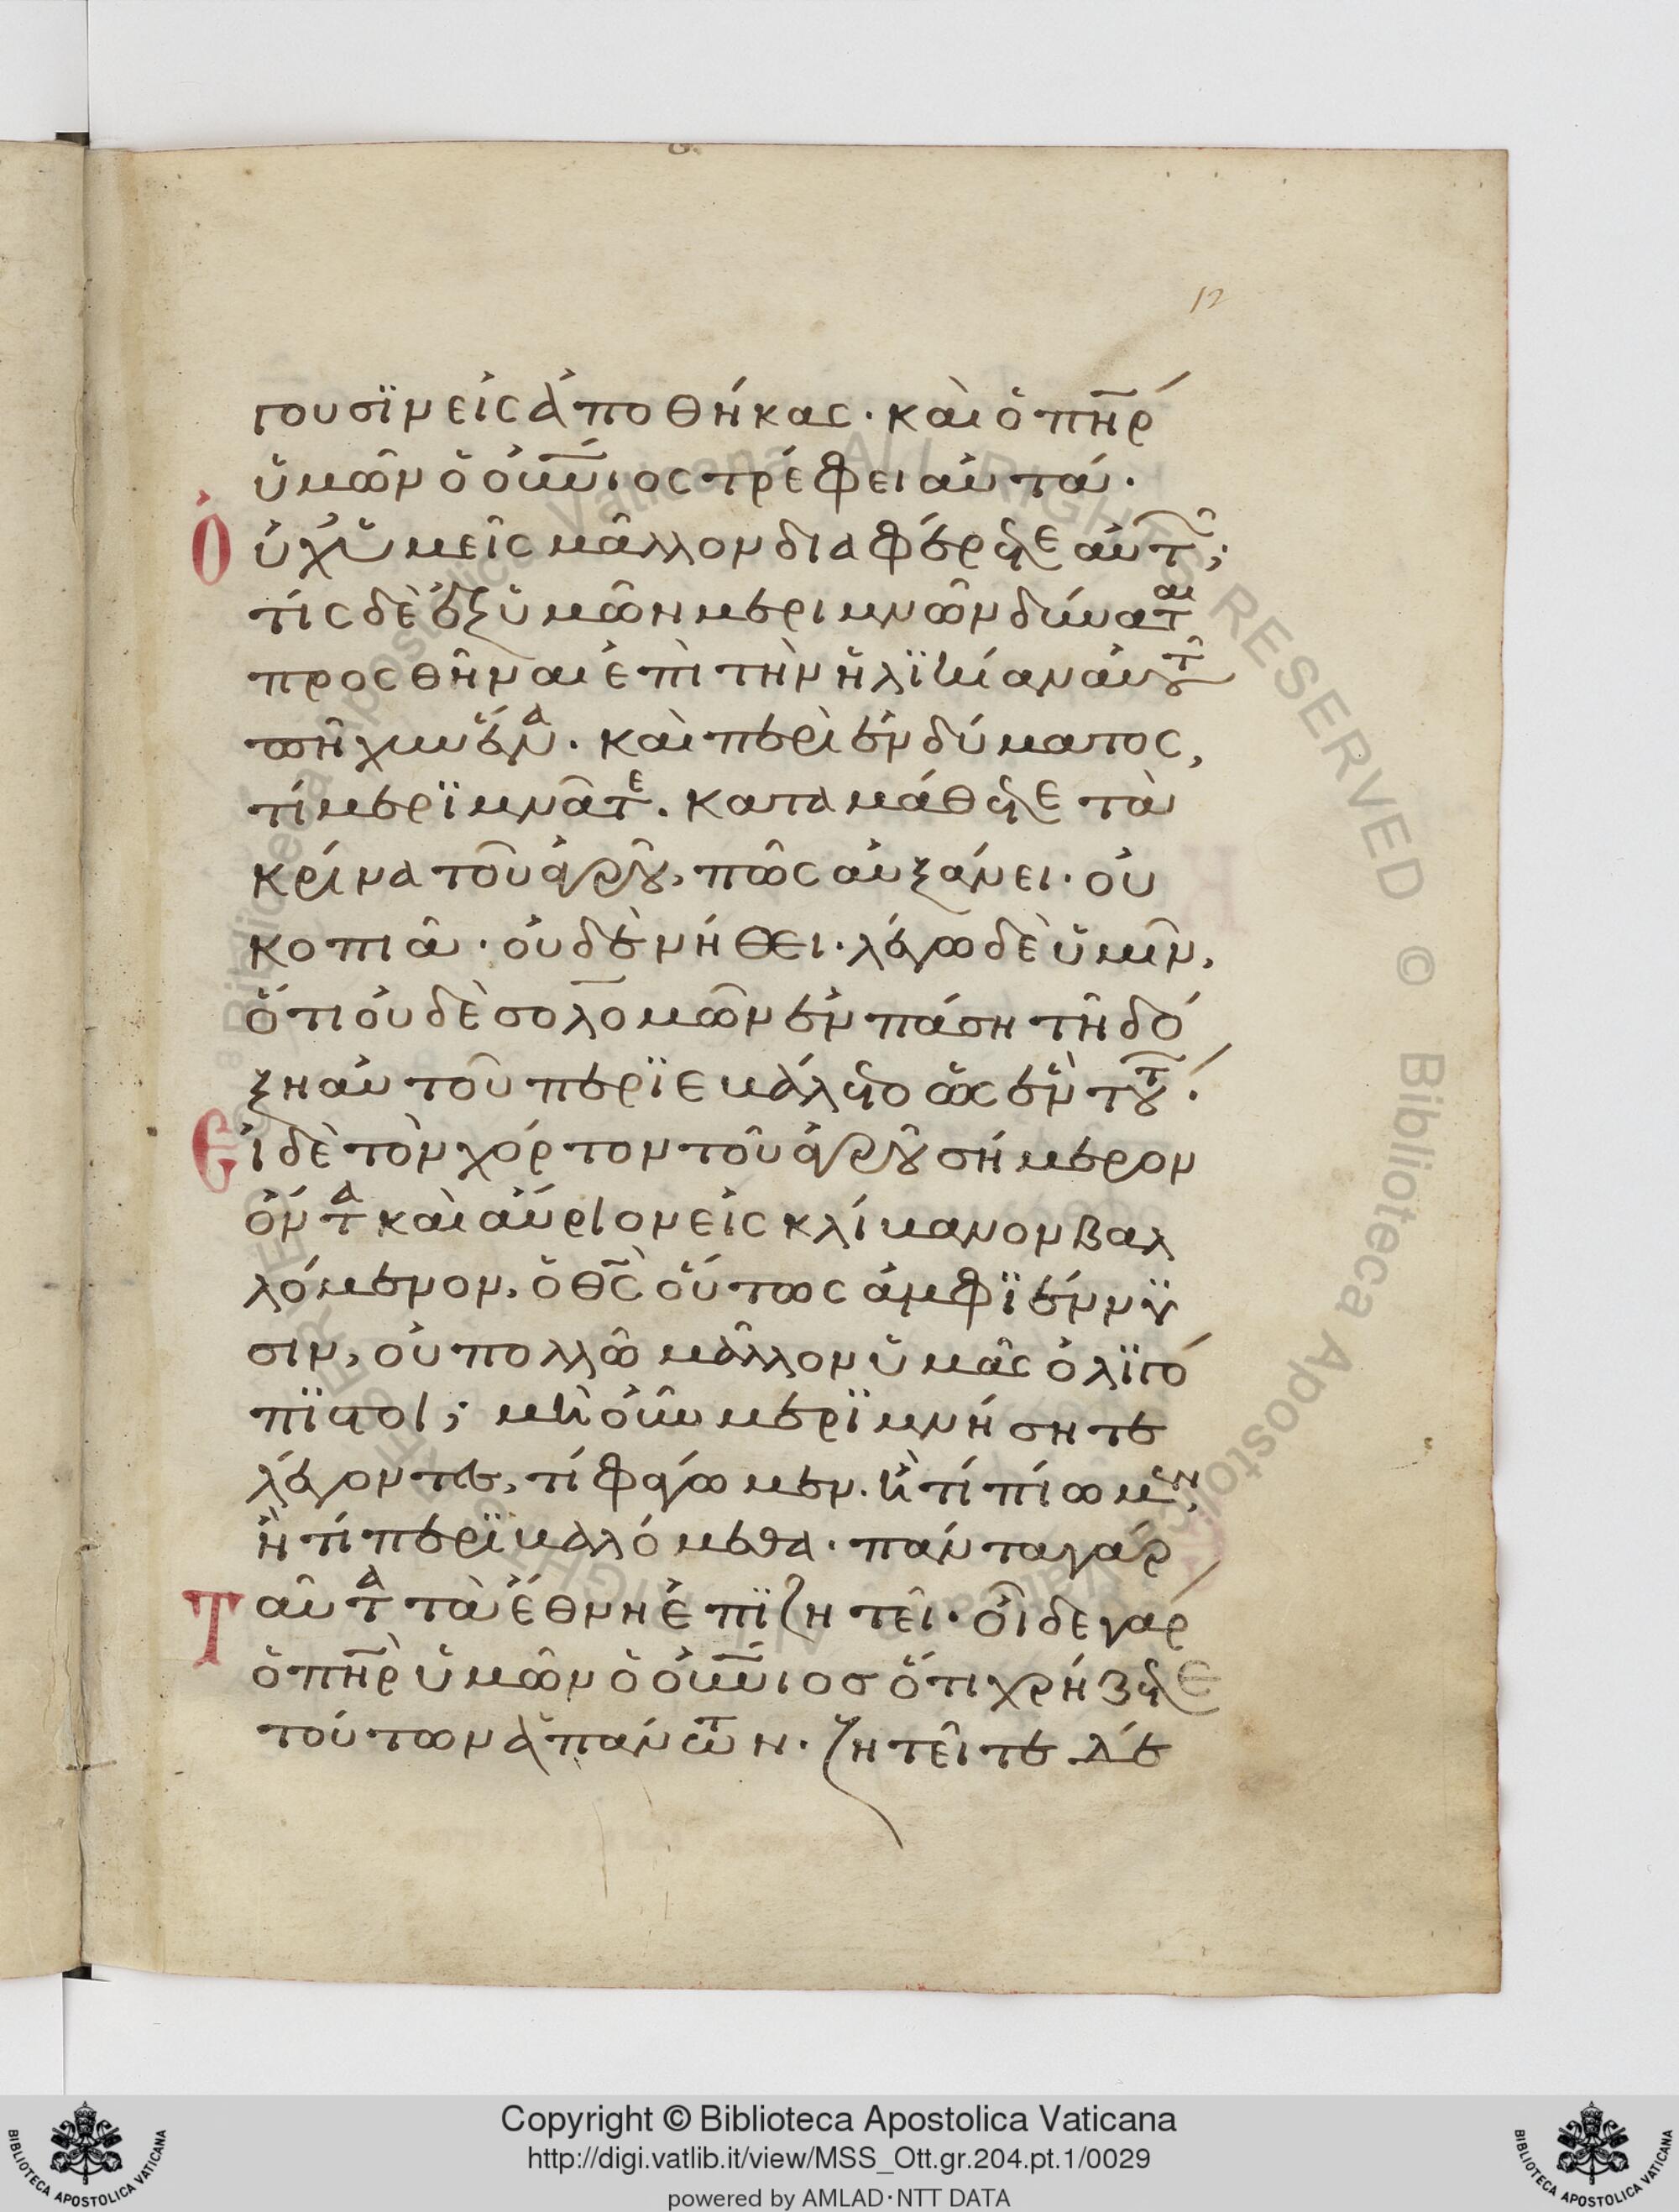 12
γουσϊν εἰς ἀποθήκας · καὶ ὁ π̅η̅ρ
ὑμῶν ὁ οὐ̅ν̅ιος τρέφει αὐτά ·
Οὐχ ὑμεῖς μᾶλλον διαφέρετε αὐτ̑;
τίς δὲ ἐξ ὑμῶν μεριμνῶν δύνατ^αι
προσθῆναι ἐπὶ τὴν ἡλϊκίαν αὐτοῦ
πῆχυν ἕν^α · καὶ περὶ ἐνδύματος,
τί μερϊμνᾶτ^ε · καταμάθετε τὰ
κρίνα τοῦ ἀγροῦ, πῶς αὐξάνει · οὐ
κοπιᾷ · οὐδὲ νήθει · λέγω δὲ ὑμῖν,
ὅτι οὐδὲ σολομῶν ἐν πάσῃ τῇ δό
ξῃ αὐτοῦ περϊεβάλετο ὡς ἓν τού^τ ·
Εἰ δὲ τὸν χόρτον τοῦ ἀγροῦ σήμερον
ὄντ^α καὶ αὔριον εἰς κλίβανον βαλ
λόμενον, ὁ θ̅ς̅ οὕτως ἀμφϊέννϋ
σιν, οὐ πολλῷ μᾶλλον ὑμᾶς ὀλϊγό
πϊστοι; μὴ οὖν μερϊμνήσητε
λέγοντες, τί φάγωμεν · ἢ τί πίωμεν,
ἢ τί περϊβαλόμεθα · πάντα γάρ
Ταῦτ^α τὰ ἔθνη ἐπϊζητεῖ · οἶδε γάρ
ὁ π̅η̅ρ ὑμῶν ὁ οὐ̅ν̅ιοσ ὅτι χρήζετε
τούτων ἁπάντων · ζητεῖτε δέ
Copyright © Biblioteca Apostolica Vaticana
http://digi.vatlib.it/view/MSS_Ott.gr.204.pt.1/0029
powered by AMLAD·NTT DATA
BIBLIOTECA APOSTOLICA VATICANA
BIBLIOTECA APOSTOLICA VATICANA